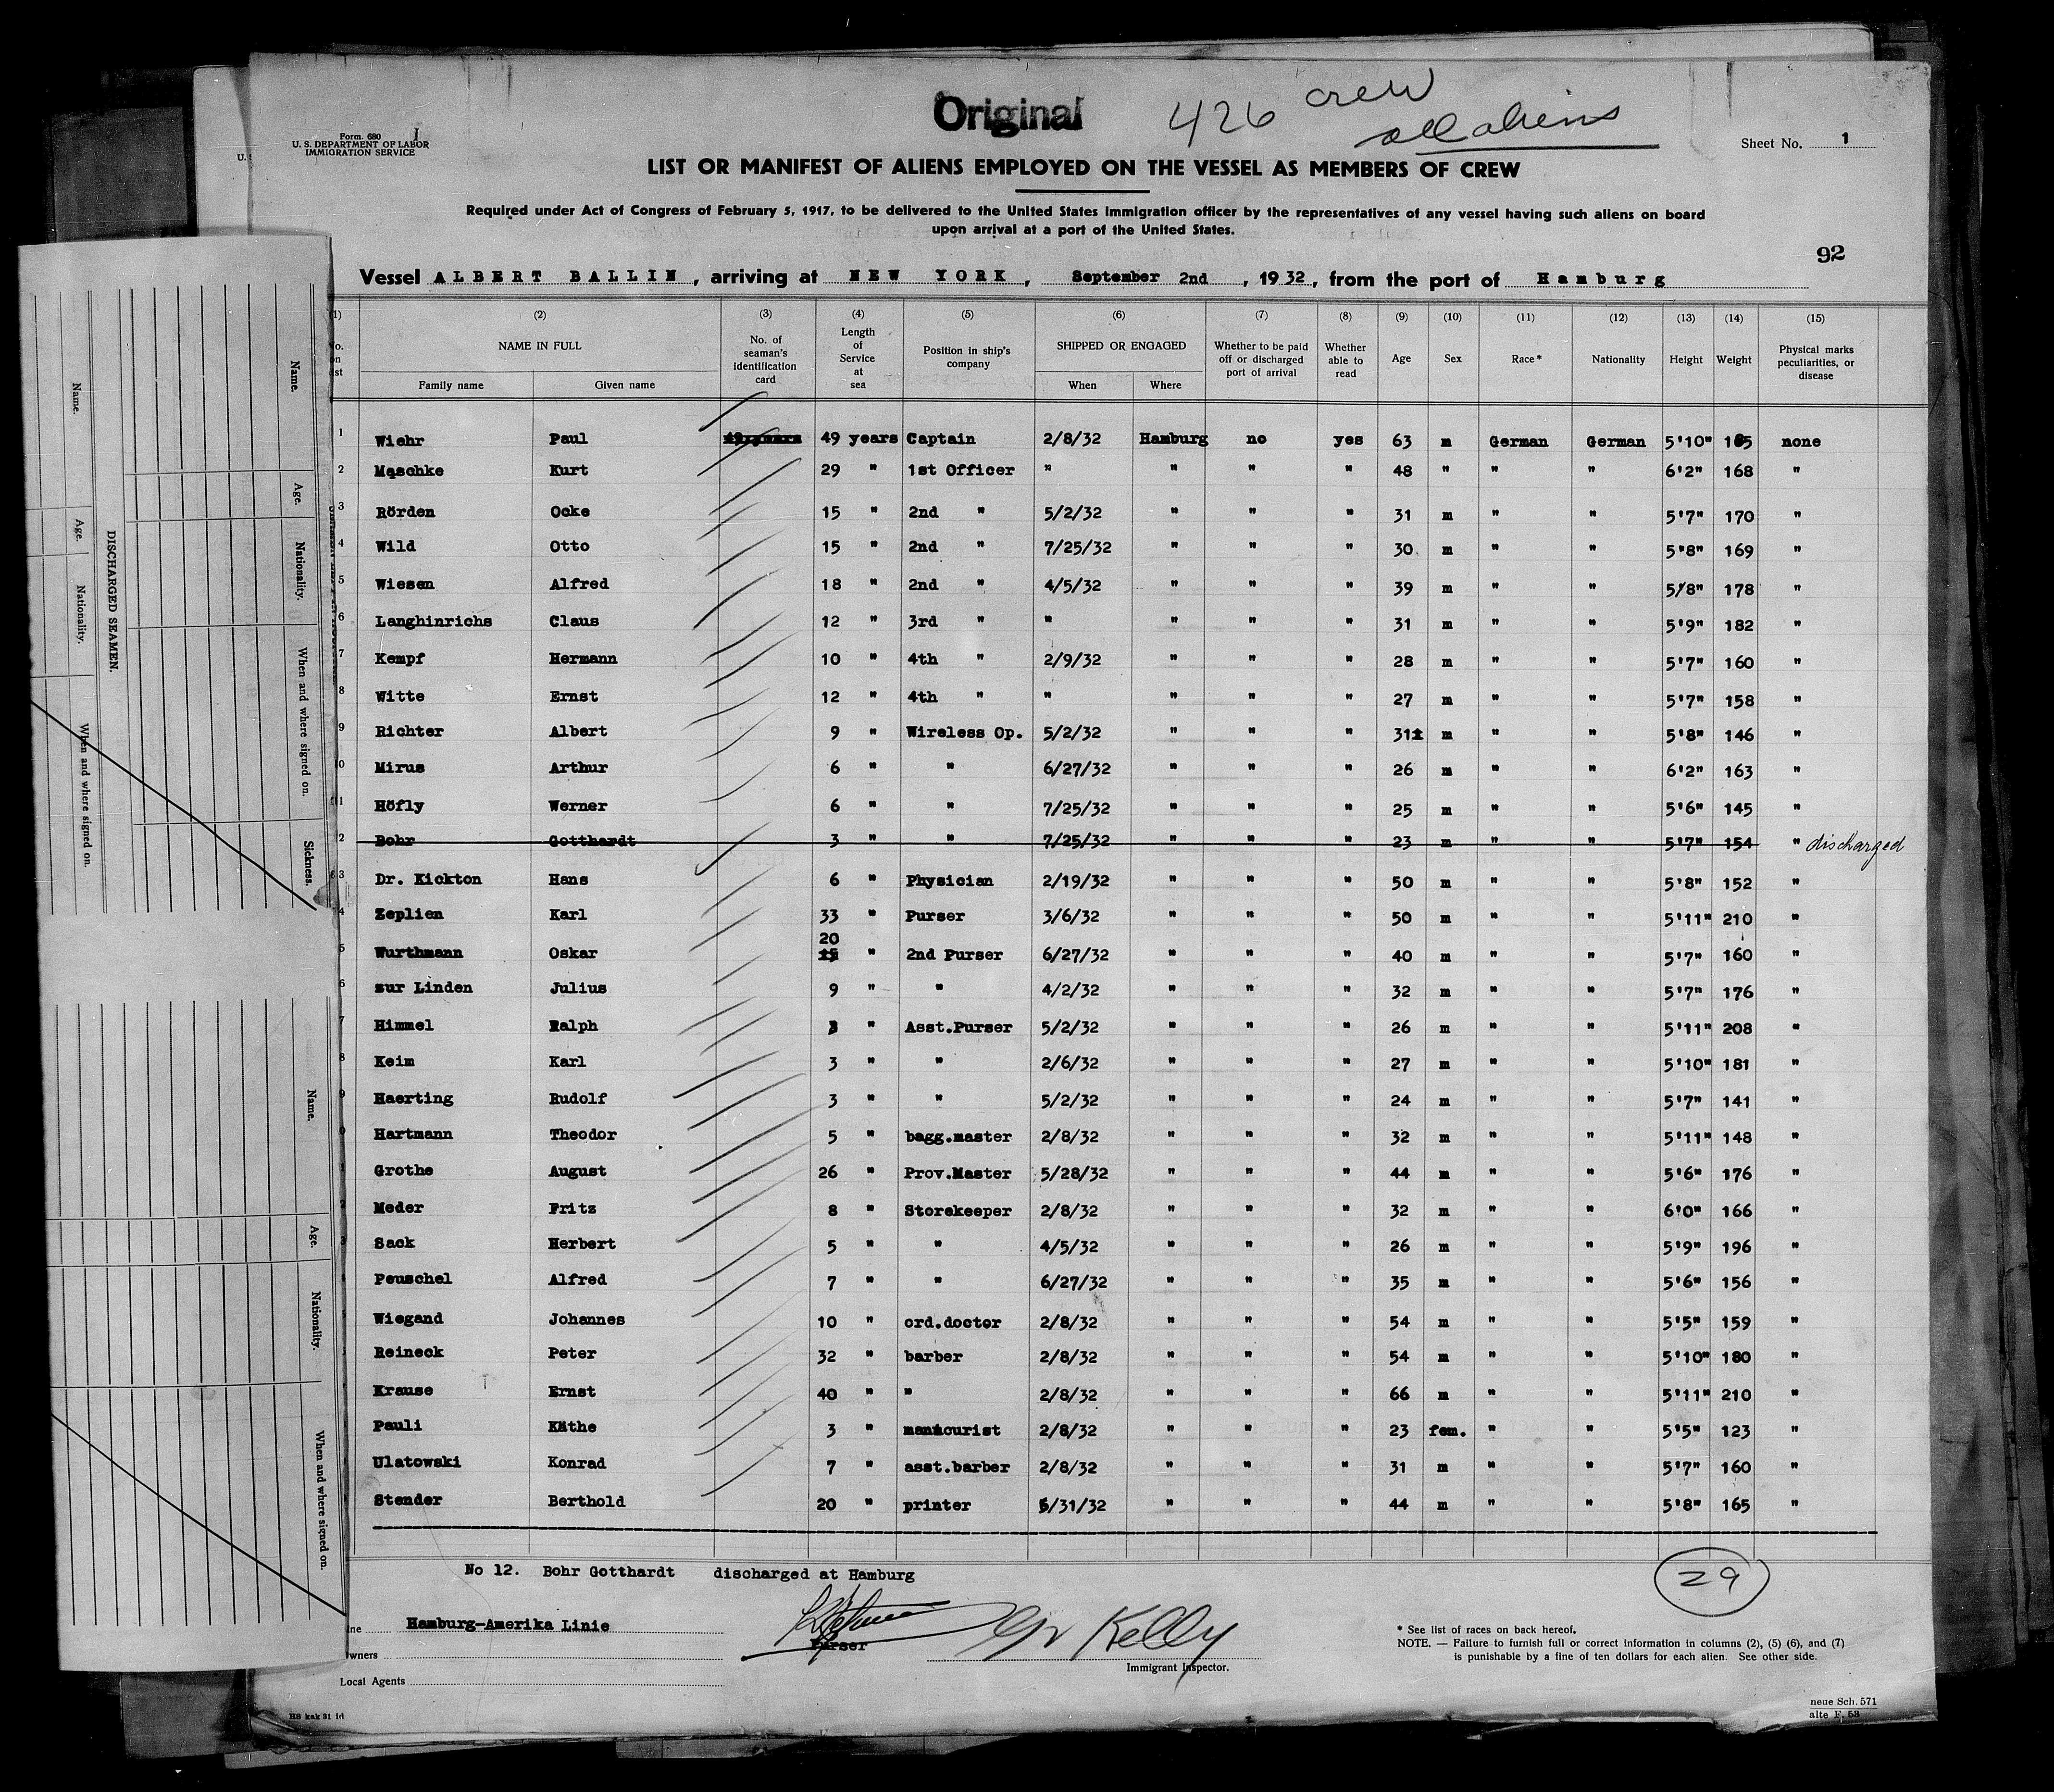 Original
426 crew
all aliens
Form. 680
U. S. DEPARTMENT OF LABOR
IMMIGRATION SERVICE
Sheet No. 1
LIST OR MANIFEST OF ALIENS EMPLOYED ON THE VESSEL AS MEMBERS OF CREW
Required under Act of Congress of February 5, 1917, to be delivered to the United States Immigration officer by the representatives of any vessel having such aliens on board
upon arrival at a port of the United States.
92
Vessel ALBERT BALLIN, arriving at NEW YORK, September 2nd, 1932, from the port of Hamburg
(1) (2) (3) (4) (5) (6) (7) (8) (9) (10) (11) (12) (13) (14) (15)
NAME IN FULL
Family name Given name
No. of seaman's identification card
Length of Service at sea
Position in ship's company
SHIPPED OR ENGAGED
When Where
Whether to be paid off or discharged port of arrival
Whether able to read
Age
Sex
Race*
Nationality
Height
Weight
Physical marks peculiarities, or disease
1 Wiehr Paul 49 years Captain 2/8/32 Hamburg no yes 63 m German German 5'10" none
2 Maschke Kurt 29 " 1st Officer " " " " 48 " " " 6'2" 168 "
3 Rörden Ocke 15 " 2nd " 5/2/32 " " " 31 m " " 5'7" 170 "
4 Wild Otto 15 " 2nd " 7/25/32 " " " 30 m " " 5'8" 169 "
5 Wiesen Alfred 18 " 2nd " 4/5/32 " " " 39 m " " 5/8" 178 "
6 Langhinrichs Claus 12 " 3rd " " " " " 31 m " " 5'9" 182 "
7 Kempf Hermann 10 " 4th " 2/9/32 " " " 28 m " " 5'7" 160 "
8 Witte Ernst 12 " 4th " " " " " 27 m " " 5'7" 158 "
9 Richter Albert 9 " Wireless Op. 5/2/32 " " " 31 m " " 5'8" 146 "
0 Mirus Arthur 6 " " 6/27/32 " " " 26 m " " 6'2" 163 "
1 Höfly Werner 6 " " 7/25/32 " " " 25 m " " 5'6" 145 "
2 Bohr Gotthardt 3 " " 7/25/32 " " " 23 m " " 5'7" 154 " discharged
3 Dr. Kickton Hans 6 " Physician 2/19/32 " " " 50 m " " 5'8" 152 "
4 Zeplien Karl 33 " Purser 3/6/32 " " " 50 m " " 5'11" 210 "
20
5 Wurthmann Oskar 15 " 2nd Purser 6/27/32 " " " 40 m " " 5'7" 160 "
6 zur Linden Julius 9 " " 4/2/32 " " " 32 m " " 5'7" 176 "
7 Himmel Ralph " Asst.Purser 5/2/32 " " " 26 m " " 5'11" 208 "
8 Keim Karl 3 " " 2/6/32 " " " 27 m " " 5'10" 181 "
9 Haerting Rudolf 3 " " 5/2/32 " " " 24 m " " 5'7" 141 "
0 Hartmann Theodor 5 " bagg.master 2/8/32 " " " 32 m " " 5'11" 148 "
1 Grothe August 26 " Prov.Master 5/28/32 " " " 44 m " " 5'6" 176 "
2 Meder Fritz 8 " Storekeeper 2/8/32 " " " 32 m " " 6'0" 166 "
3 Sack Herbert 5 " " 4/5/32 " " " 26 m " " 5'9" 196 "
Peuschel Alfred 7 " " 6/27/32 " " " 35 m " " 5'6" 156 "
Wiegand Johannes 10 " ord.doctor 2/8/32 " " " 54 m " " 5'5" 159 "
Reineck Peter 32 " barber 2/8/32 " " " 54 m " " 5'10" 180 "
Krause Ernst 40 " " 2/8/32 " " " 66 m " " 5'11" 210 "
Pauli Käthe 3 " manicurist 2/8/32 " " " 23 fem. " " 5'5" 123 "
Ulatowski Konrad 7 " asst.barber 2/8/32 " " " 31 m " " 5'7" 160 "
Stender Berthold 20 " printer 5/31/32 " " " 44 m " " 5'8" 165 "
No 12. Bohr Gotthardt discharged at Hamburg
29
Hamburg-Amerika Linie
Purser
Kelly
Owners
Immigrant Inspector.
Local Agents
* See list of races on back hereof.
NOTE. — Failure to furnish full or correct information in columns (2), (5) (6), and (7)
is punishable by a fine of ten dollars for each alien. See other side.
HS kak 31 id
neue Sch. 571
alte F. 58
DISCHARGED SEAMEN.
Name. Age. Nationality. When and where signed on.
Name. Age. Nationality. When and where signed on. Sickness.
Name. Age. Nationality. When and where signed on.